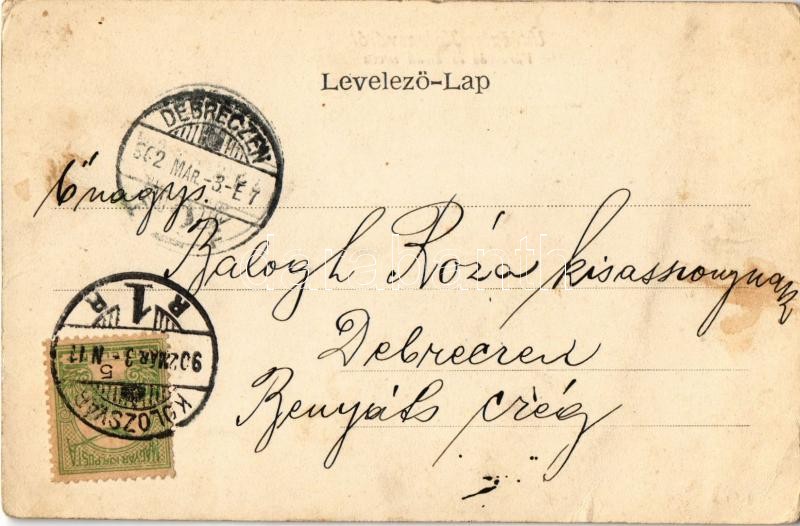 Levelező-Lap
DEBRECZEN
902 MÁR.-3.-E 7
Őnagys.
Balogh Roza kisasszonynak
Debreczen
Benyáts czég
KOLOZSVÁR
902 MÁR 3 - N 11
5
1
R R
MAGYAR KIR. POSTA
darabanth